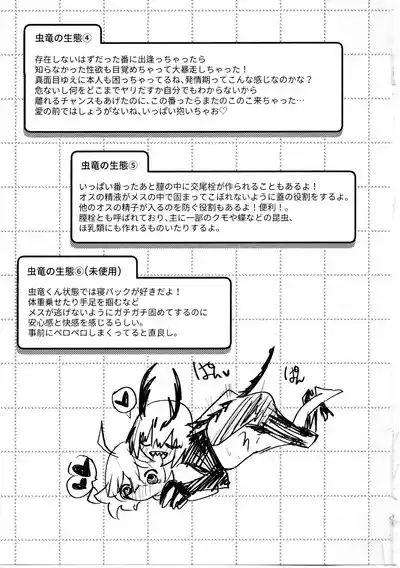 虫竜の生態④
存在しないはずだった番に出逢っちゃったら
知らなかった性欲も目覚めちゃって大暴走しちゃった！
真面目ゆえに本人も困っちゃってるね、発情期ってこんな感じなのかな？
危ないし何をどこまでヤリだすか自分でもわからないから
離れるチャンスもあげたのに、この番ったらまたのこのこ来ちゃった…
愛の前ではしょうがないね、いっぱい抱いちゃお♡
虫竜の生態⑤
いっぱい番ったあと膣の中に交尾栓が作られることもあるよ！
オスの精液がメスの中で固まってこぼれないように蓋の役割をするよ。
他のオスの精子が入るのを防ぐ役割もあるよ！便利！。
膣栓とも呼ばれており、主に一部のクモや蝶などの昆虫、
ほ乳類にも作れるものいたりするよ。
虫竜の生態⑥(未使用)
虫竜くん状態では寝バックが好きだよ！
体重乗せたり手足を掴むなど
メスが逃げないようにガチガチ固めてするのに
安心感と快感を感じるらしい。
事前にペロペロしまくってると直良し。
ぱん
ぱん